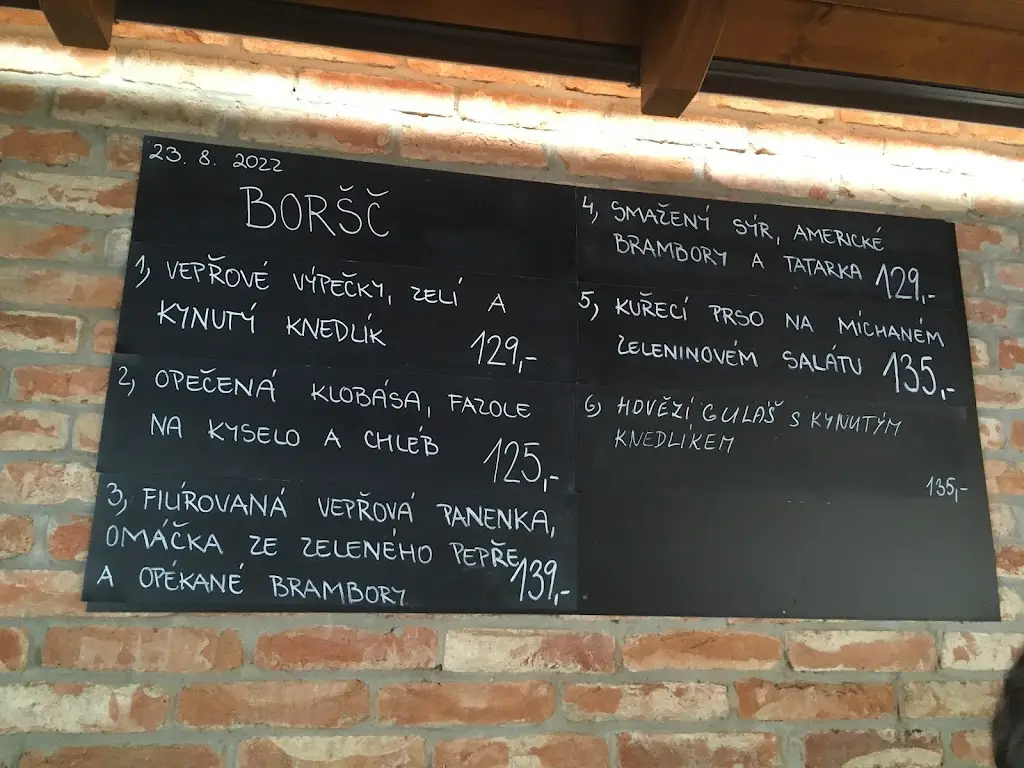 23. 8. 2022
BORŠČ
1, VEPŘOVÉ VÝPEČKY, ZELÍ A
KYNUTÝ KNEDLÍK 129,-
2, OPEČENÁ KLOBÁSA, FAZOLE
NA KYSELO A CHLÉB 125,-
3, FILÍROVANÁ VEPŘOVÁ PANENKA,
OMÁČKA ZE ZELENÉHO PEPŘE
A OPÉKANÉ BRAMBORY 139,-
4, SMAŽENÝ SÝR, AMERICKÉ
BRAMBORY A TATARKA 129,-
5, KUŘECÍ PRSO NA MÍCHANÉM
ZELENINOVÉM SALÁTU 135,-
6, HOVĚZÍ GULÁŠ S KYNUTÝM
KNEDLÍKEM
135,-